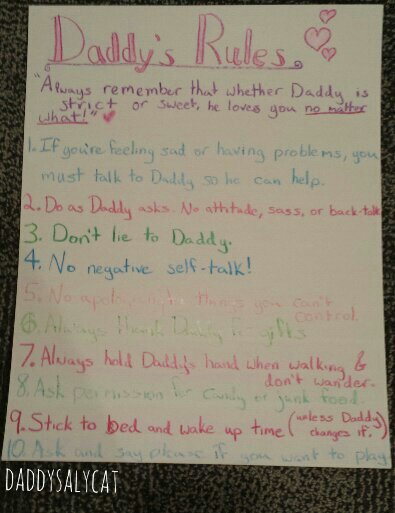 Daddy's Rules.
"Always remember that whether Daddy is
strict or sweet, he loves you no matter
what!"
1. If you're feeling sad or having problems, you
must talk to Daddy so he can help.
2. Do as Daddy asks. No attitude, sass, or back-talk
3. Don't lie to Daddy.
4. No negative self-talk!
5. No apologizing for things you can't
control.
6. Always thank Daddy for gifts
7. Always hold Daddy's hand when walking &
don't wander.
8. Ask permission for candy or junk food.
9. Stick to bed and wake up time (unless Daddy
changes it.)
10. Ask and say please if you want to play
DADDYSALYCAT